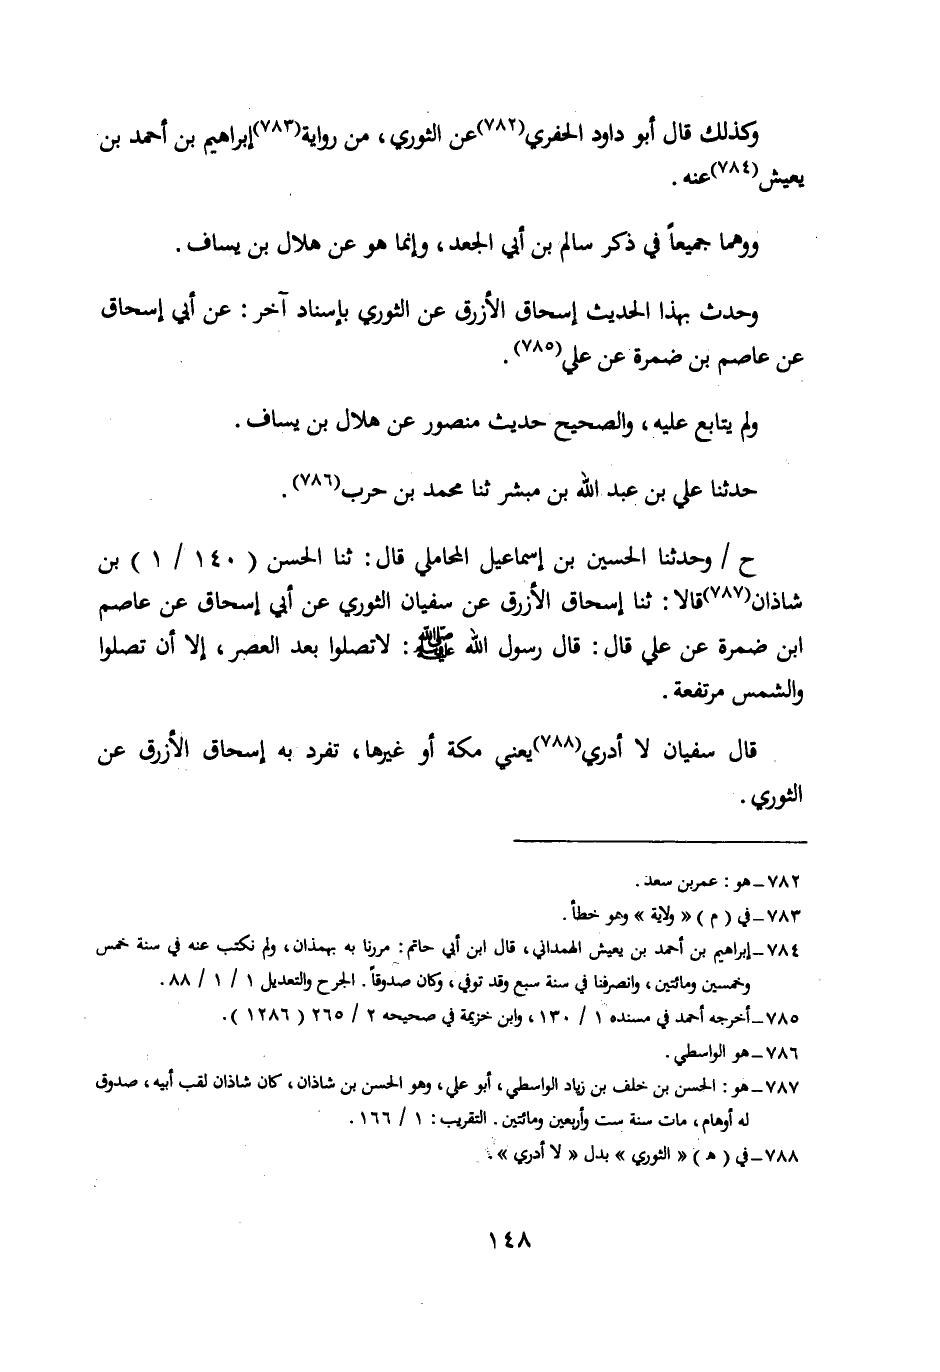 وكذلك قال أبو داود الحفري(٧٨٢)عن الثوري، من رواية(٧٨٣)إبراهيم بن أحمد بن
يعيش(٧٨٤)عنه .
ووهما جميعاً في ذكر سالم بن أبي الجعد، وإنما هو عن هلال بن يساف .
وحدث بهذا الحديث إسحاق الأزرق عن الثوري بإسناد آخر : عن أبي إسحاق
عن عاصم بن ضمرة عن علي(٧٨٥) .
ولم يتابع عليه، والصحيح حديث منصور عن هلال بن يساف .
حدثنا علي بن عبد الله بن مبشر ثنا محمد بن حرب(٧٨٦) .
ح / وحدثنا الحسين بن إسماعيل المحاملي قال : ثنا الحسن ( ١٤٠ / ١ ) بن
شاذان(٧٨٧)قالا : ثنا إسحاق الأزرق عن سفيان الثوري عن أبي إسحاق عن عاصم
ابن ضمرة عن علي قال : قال رسول الله ﷺ : لاتصلوا بعد العصر، إلا أن تصلوا
والشمس مرتفعة .
قال سفيان لا أدري(٧٨٨)يعني مكة أو غيرها، تفرد به إسحاق الأزرق عن
الثوري .
٧٨٢ـ هو : عمربن سعد .
٧٨٣ـ في ( م ) « ولاية » وهو خطأ .
٧٨٤ـ إبراهيم بن أحمد بن يعيش الهمداني، قال ابن أبي حاتم : مررنا به بهمذان، ولم نكتب عنه في سنة خمس
وخمسين ومائتين، وانصرفنا في سنة سبع وقد توفي، وكان صدوقاً . الجرح والتعديل ١ / ١ / ٨٨ .
٧٨٥ـ أخرجه أحمد في مسنده ١ / ١٣٠، وابن خزيمة في صحيحه ٢ / ٢٦٥ ( ١٢٨٦ ) .
٧٨٦ـ هو الواسطي .
٧٨٧ـ هو : الحسن بن خلف بن زياد الواسطي، أبو علي، وهو الحسن بن شاذان، كان شاذان لقب أبيه، صدوق
له أوهام، مات سنة ست وأربعين ومائتين . التقريب : ١ / ١٦٦ .
٧٨٨ـ في ( هـ ) « الثوري » بدل « لا أدري » .
١٤٨